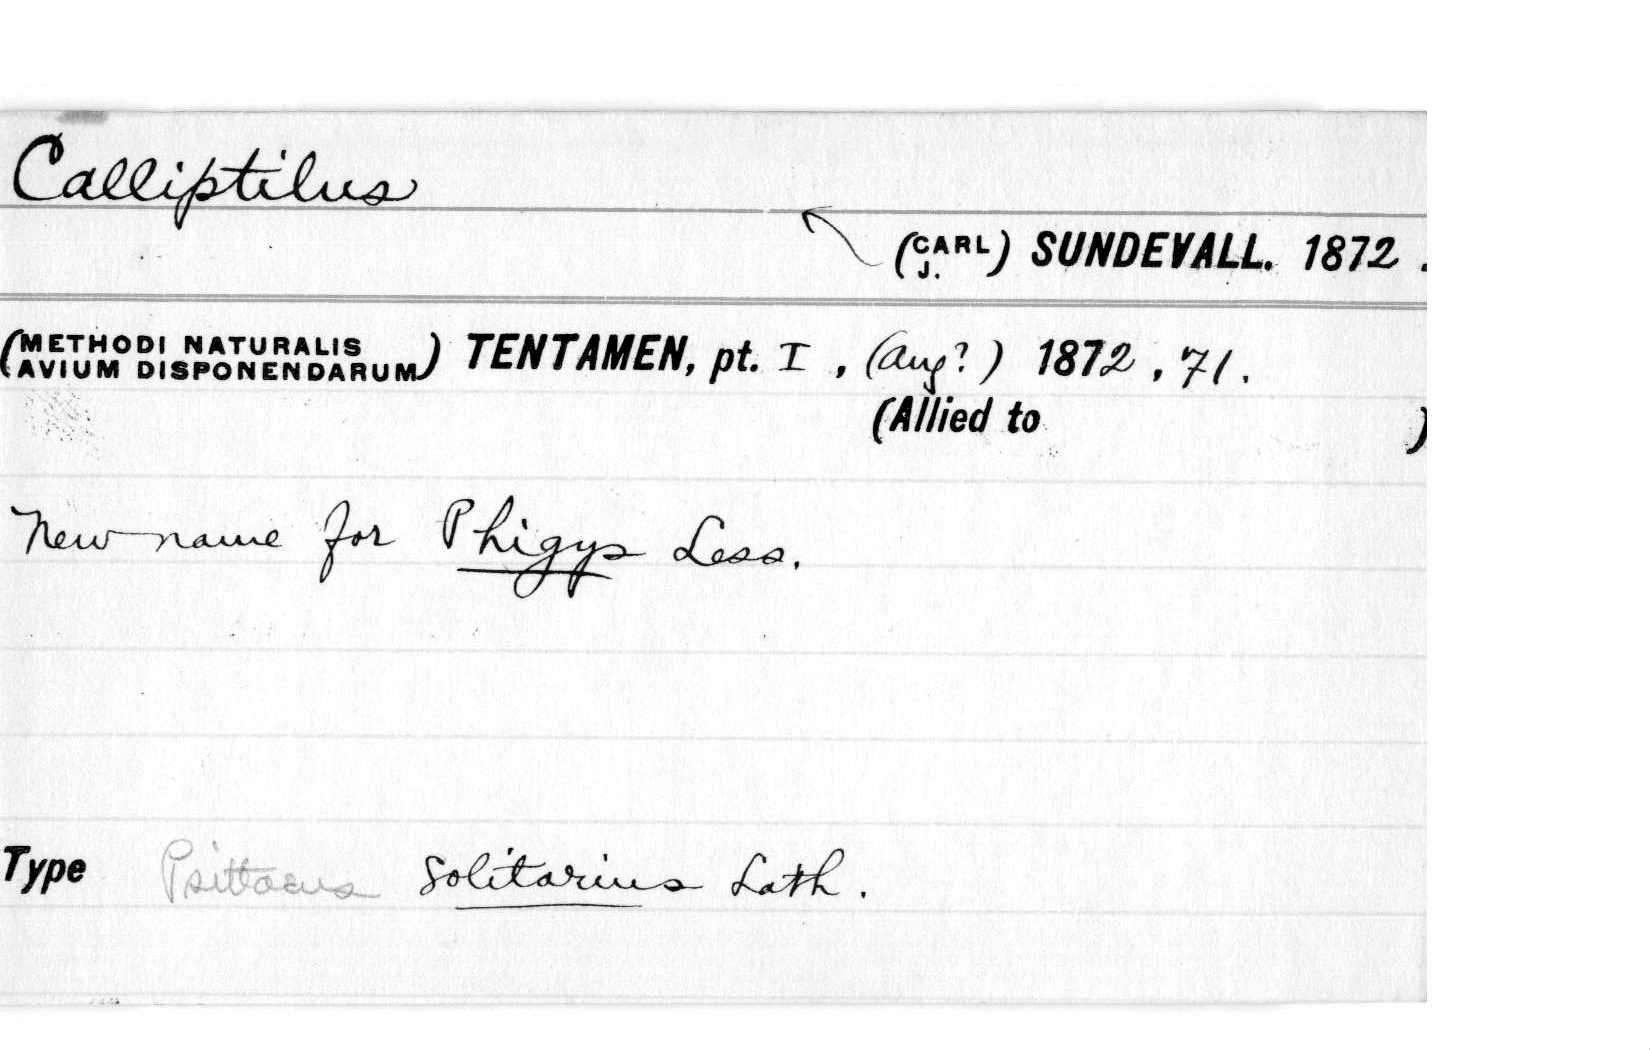 Calliptilus
(CARL J.) SUNDEVALL. 1872.
(METHODI NATURALIS AVIUM DISPONENDARUM) TENTAMEN, pt. I, (Aug?) 1872, 71.
(Allied to )
New name for Phigys Less.
Type Psittacus solitarius Lath.